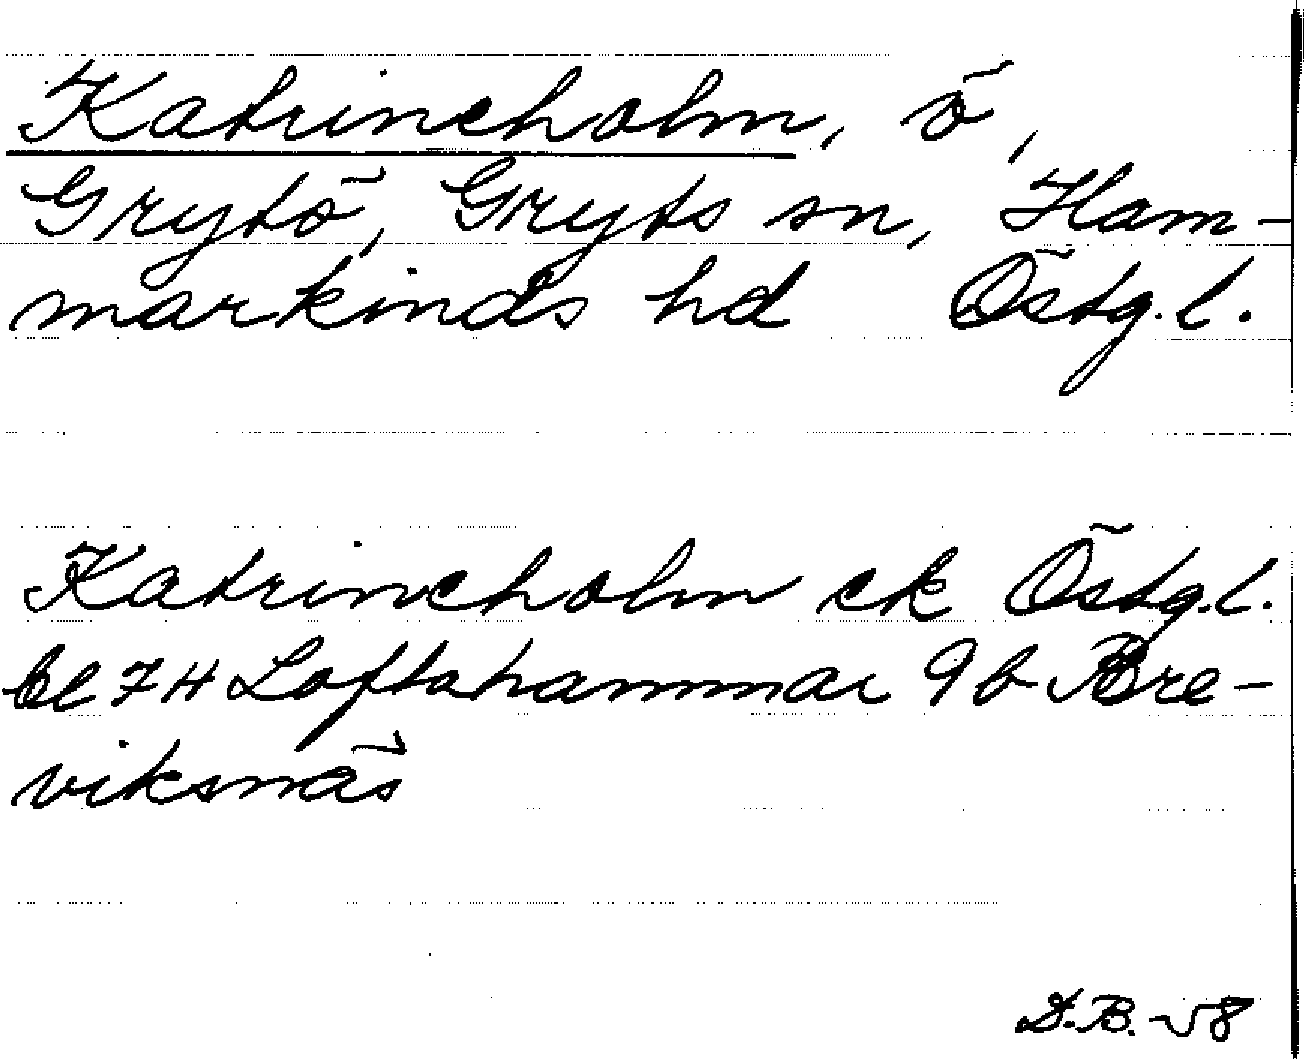 Katrineholm, ö,
Grytö, Gryts sn, Ham-
markinds hd Östg.l.
Katrineholm ek Östg.l.
bl 7H Loftahammar 9b Bre-
viksnäs
D.B. -58